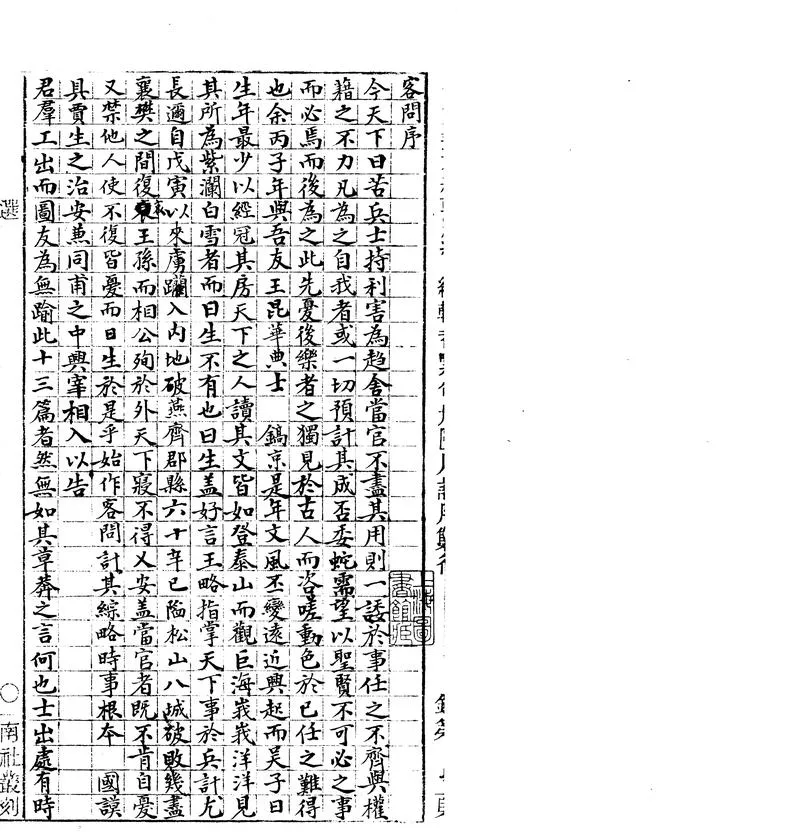 客問序
今天下日苦兵士持利害為趨舍當官不盡其用則一諉於事任之不齊與權
藉之不力凡為之自我者或一切預計其成否委蛇需望以聖賢不可必之事
而必焉而後為之此先憂後樂者之獨見於古人而咨嗟動色於已任之難得
也余丙子年與吾友王昆華典士 鎬京是年文風丕變遠近興起而吴子日
生年最少以經冠其房天下之人讀其文皆如登泰山而觀巨海峩峩洋洋見
其所為紫瀾白雪者而曰生不有也曰生盖好言王略指掌天下事於兵計尤
長邇自戊寅以來虜躪入内地破燕齊郡縣六十辛已陥松山八城破敗幾盡
襄樊之間復哀王孫而相公殉於外天下寢不得乂安盖當官者既不肯自憂
又禁他人使不復皆憂而日生於是乎始作客問計其綜略時事根本 國謨
具賈生之治安蕪同甫之中興宰相入以告
君羣工出而圖友為無踰此十三篇者然無如其草莽之言何也士出處有時
選
〇
南社叢刻
上海圖
書館